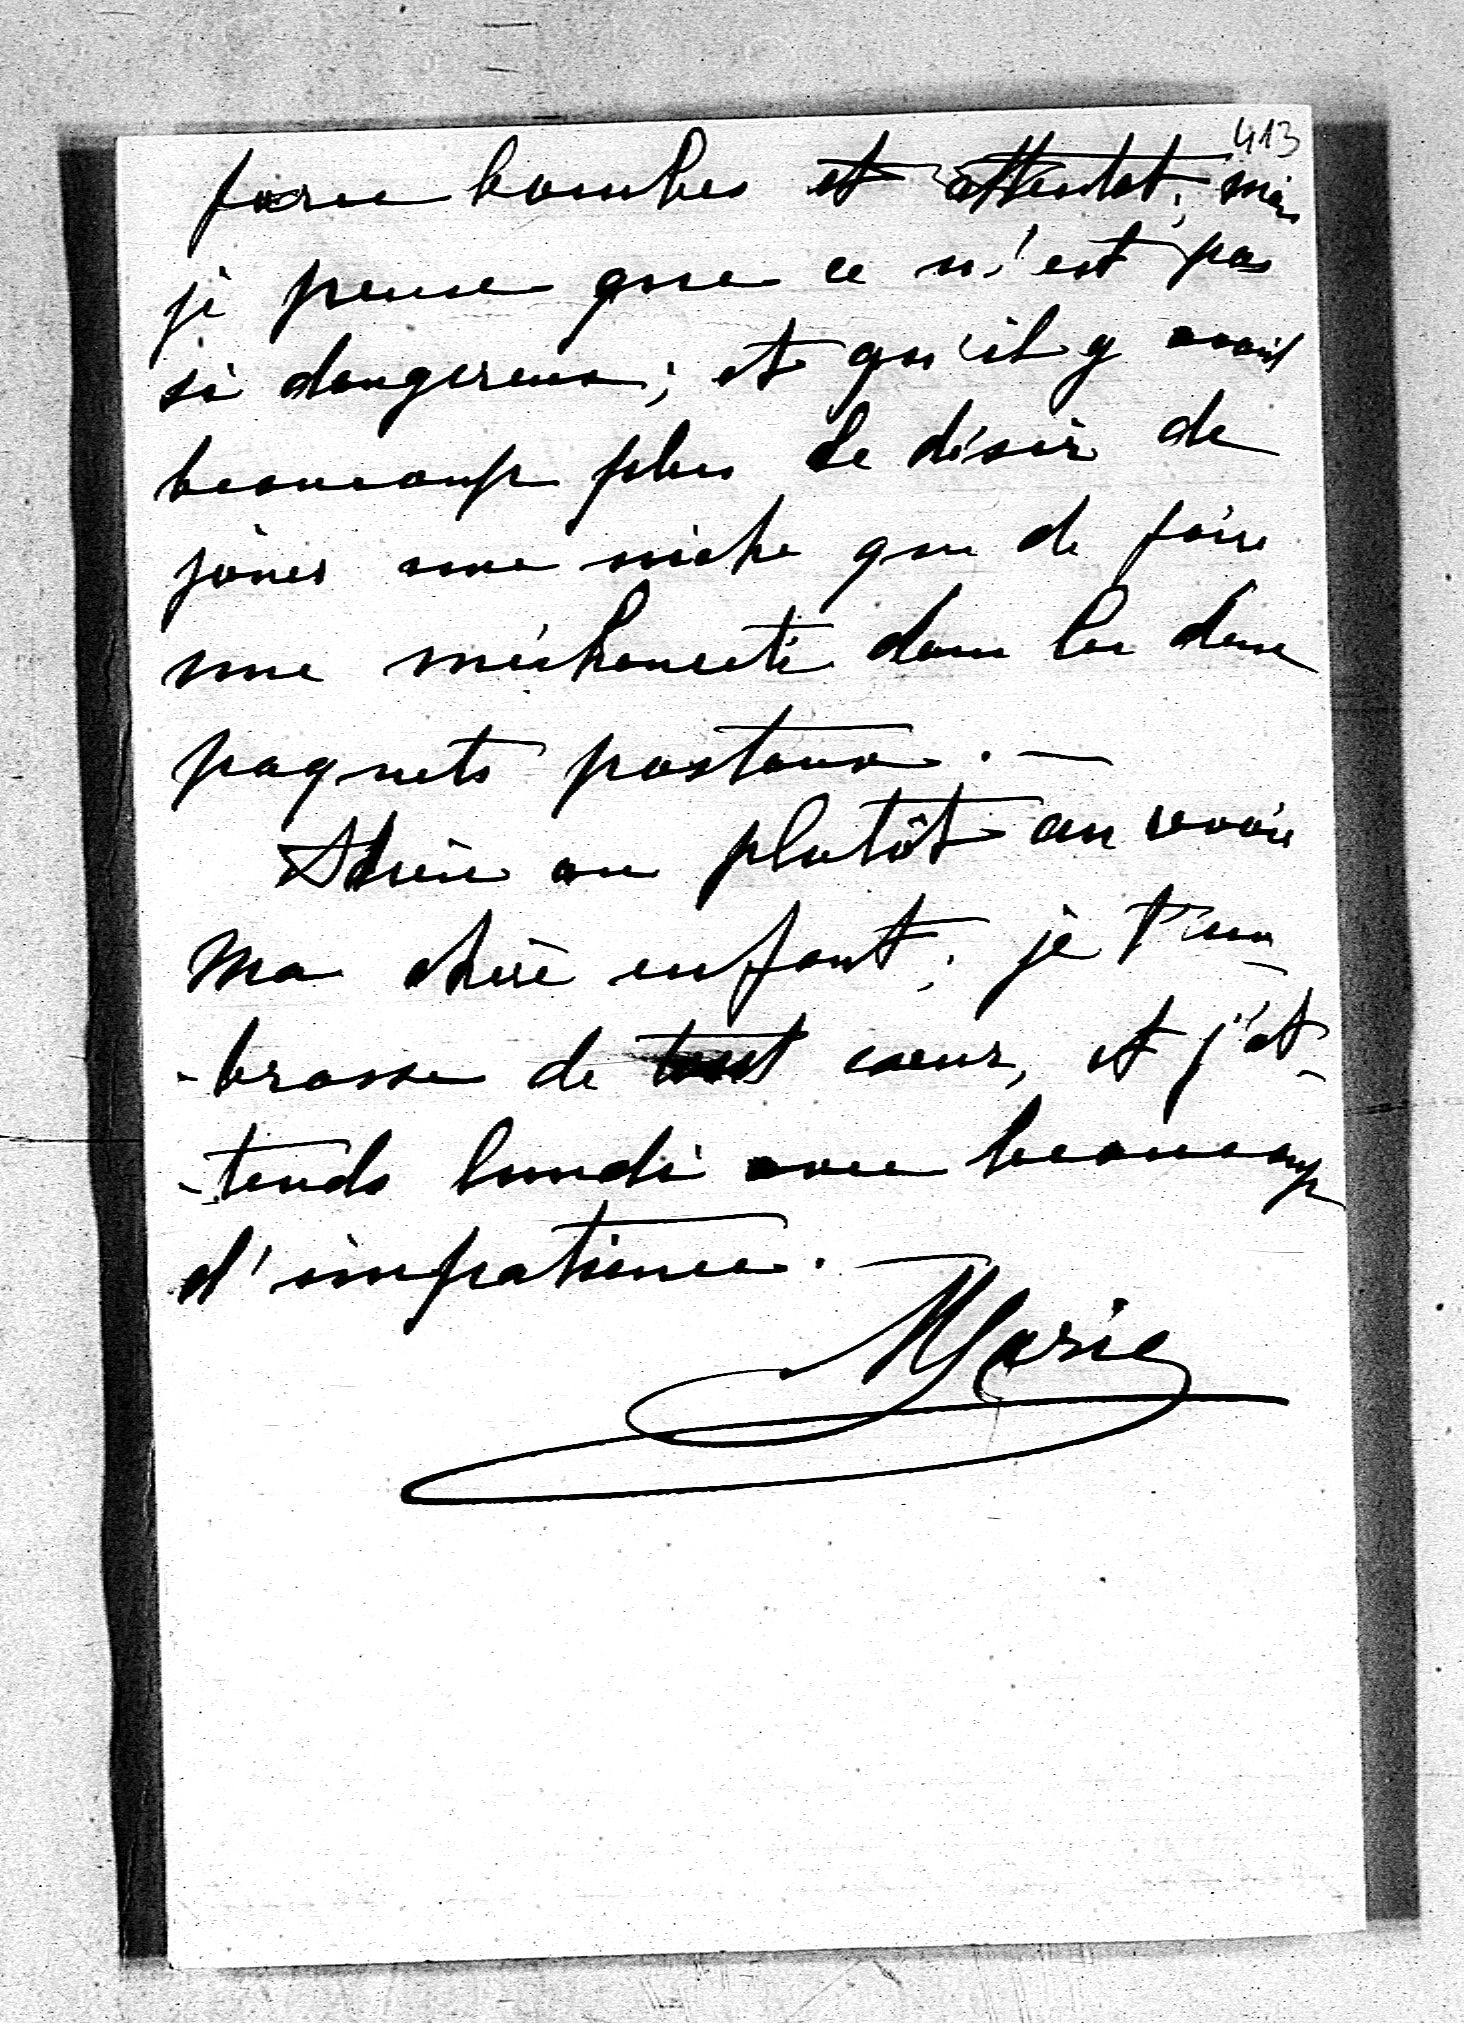 413
force bombes et attentat; mais
je pense que ce n'est pas
si dangereux; et qu'il y avait
beaucoup plus de désir de
jouer une niche que de faire
une méchanceté dans les deux
paquets postaux. —
Adieu ou plutôt au revoir
ma chère enfant; je t'em-
-brasse de tout cœur, et j'at-
-tends lundi avec beaucoup
d'impatience.
Marie